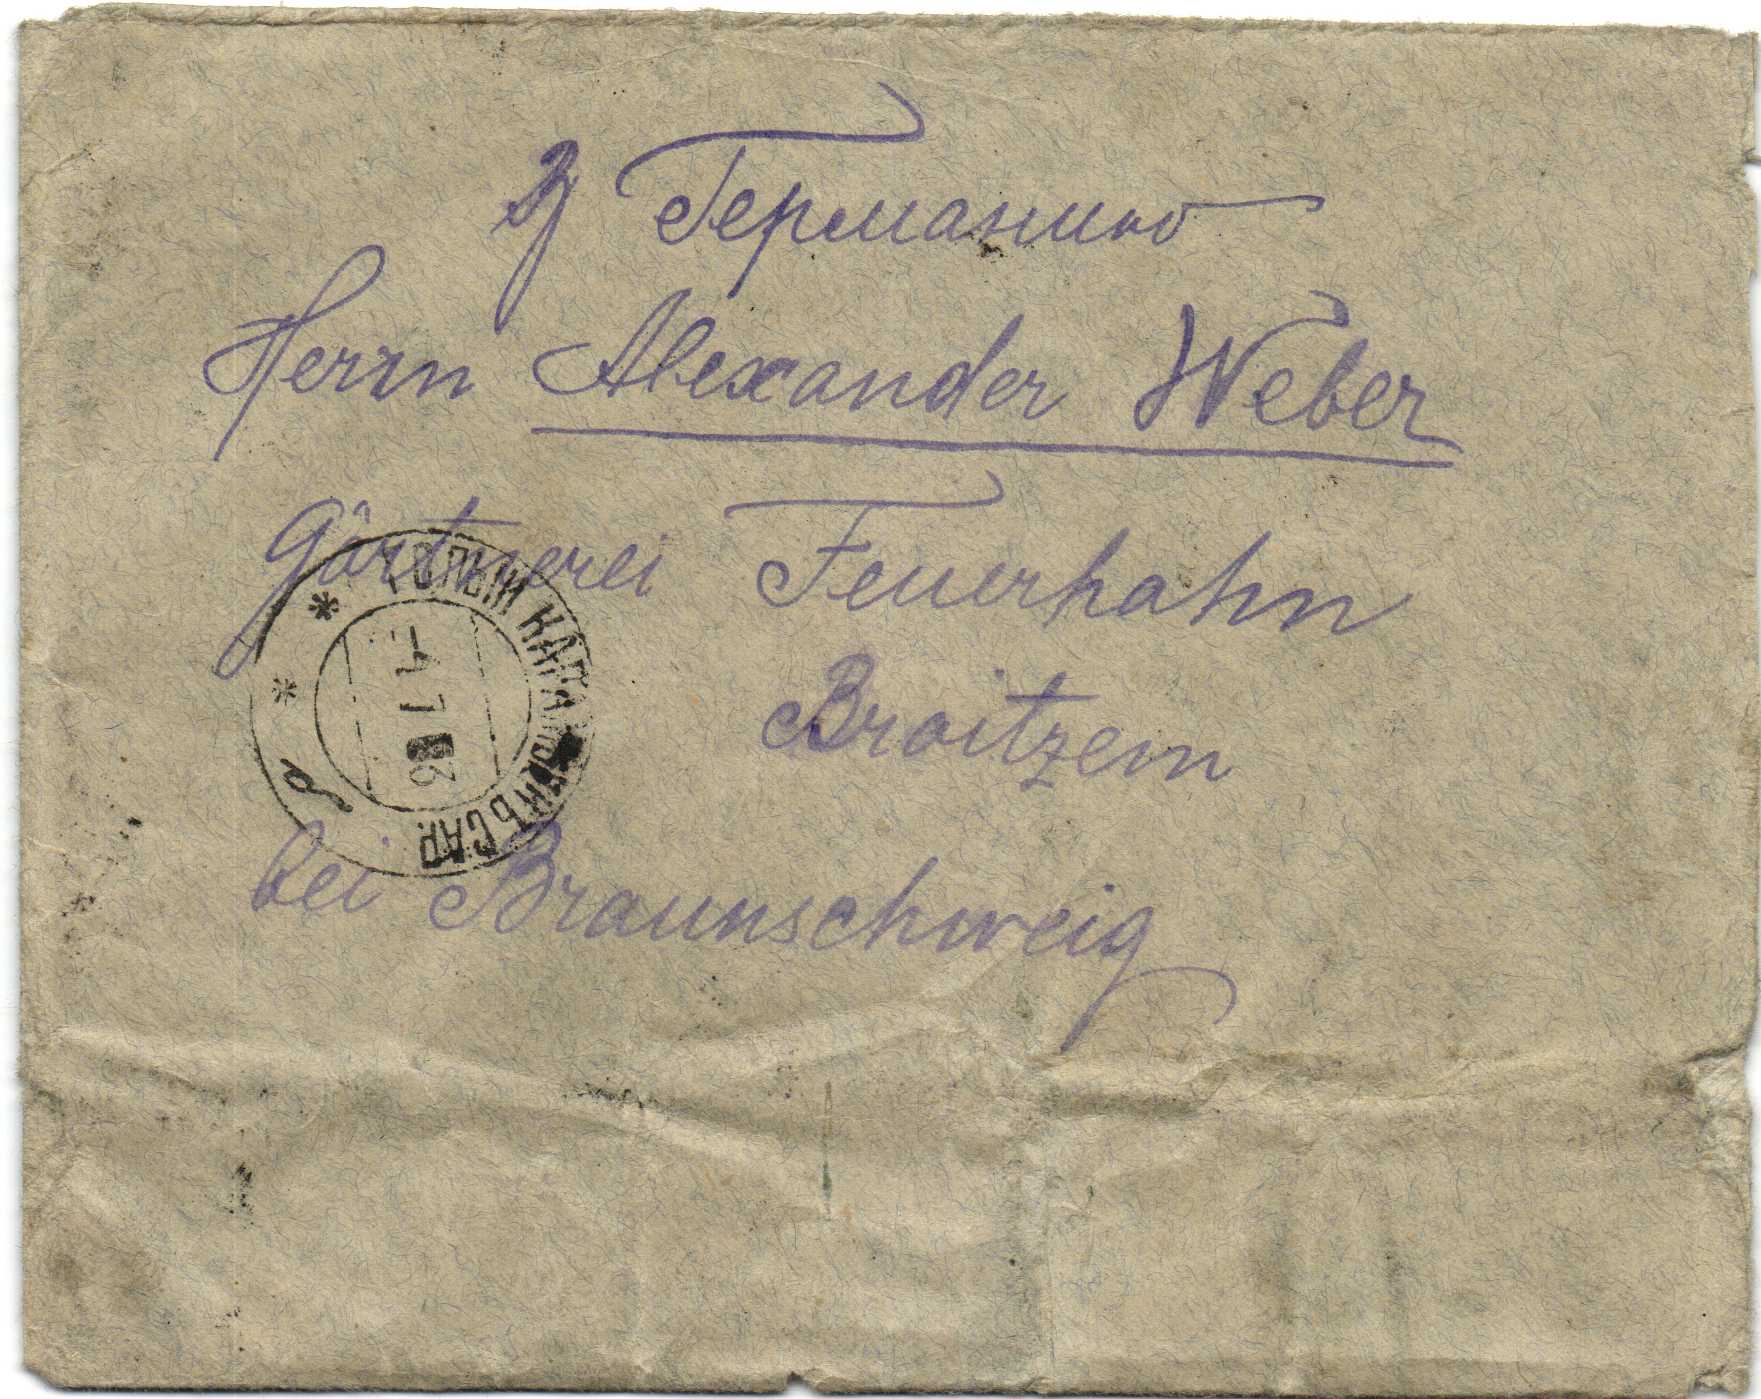 З Германию
Herrn Alexander Weber
Gärtnerei Feuerhahn
Broitzem
bei Braunschweig
ГОЛЫЙ САР.